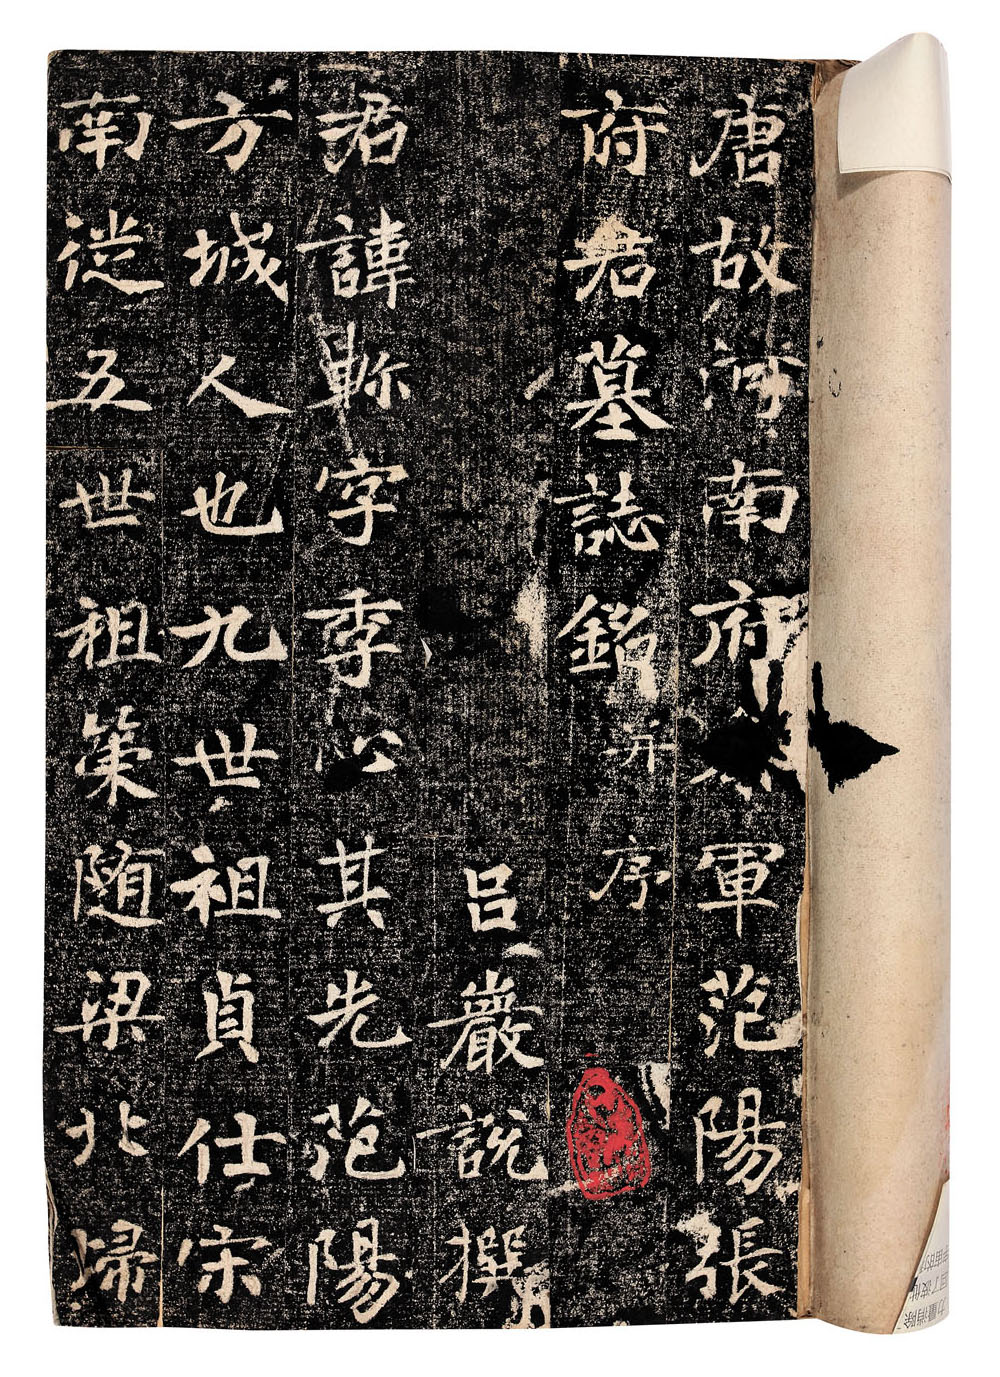 唐故河南府參軍范陽張
府君墓誌銘并序
呂巖說撰
君諱軫字季心其先范陽
方城人也九世祖貞仕宋
南徙五世祖策隨梁北歸